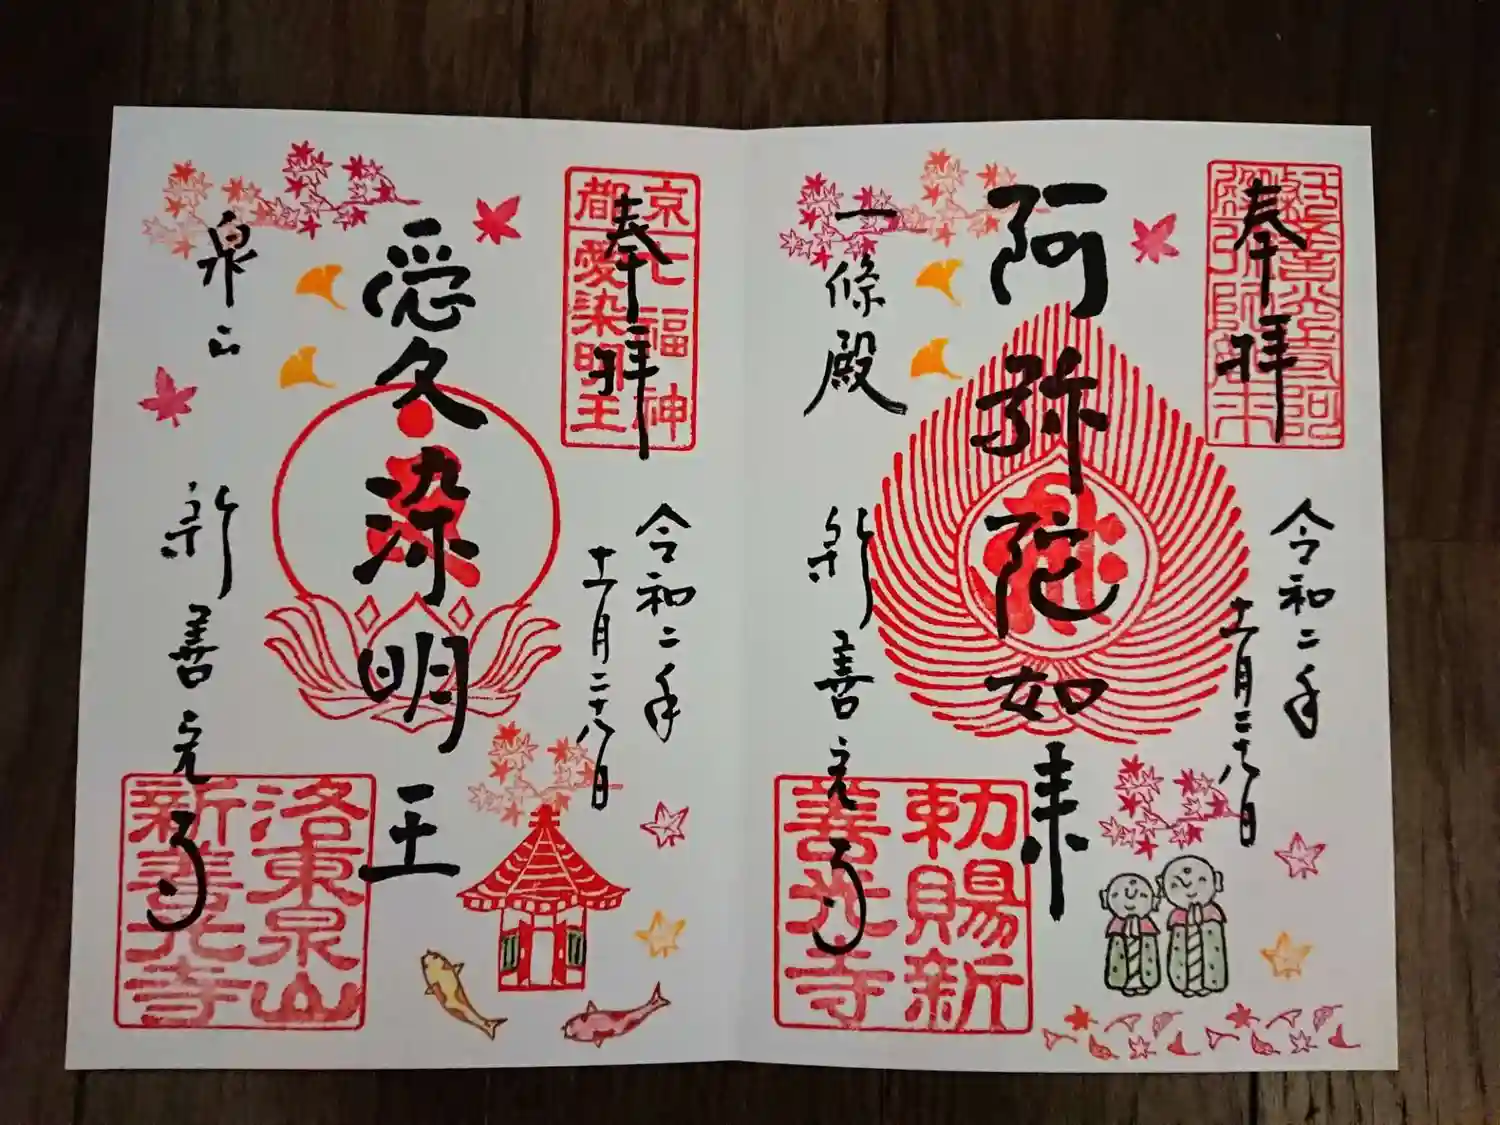 奉拝
令和二年
十一月二十八日
阿弥陀如来
一條殿
新善光寺
勅賜新
善光寺
奉拝
京都
七福神
愛染明王
令和二年
十一月二十八日
愛染明王
泉山
新善光寺
洛東泉山
新善光寺